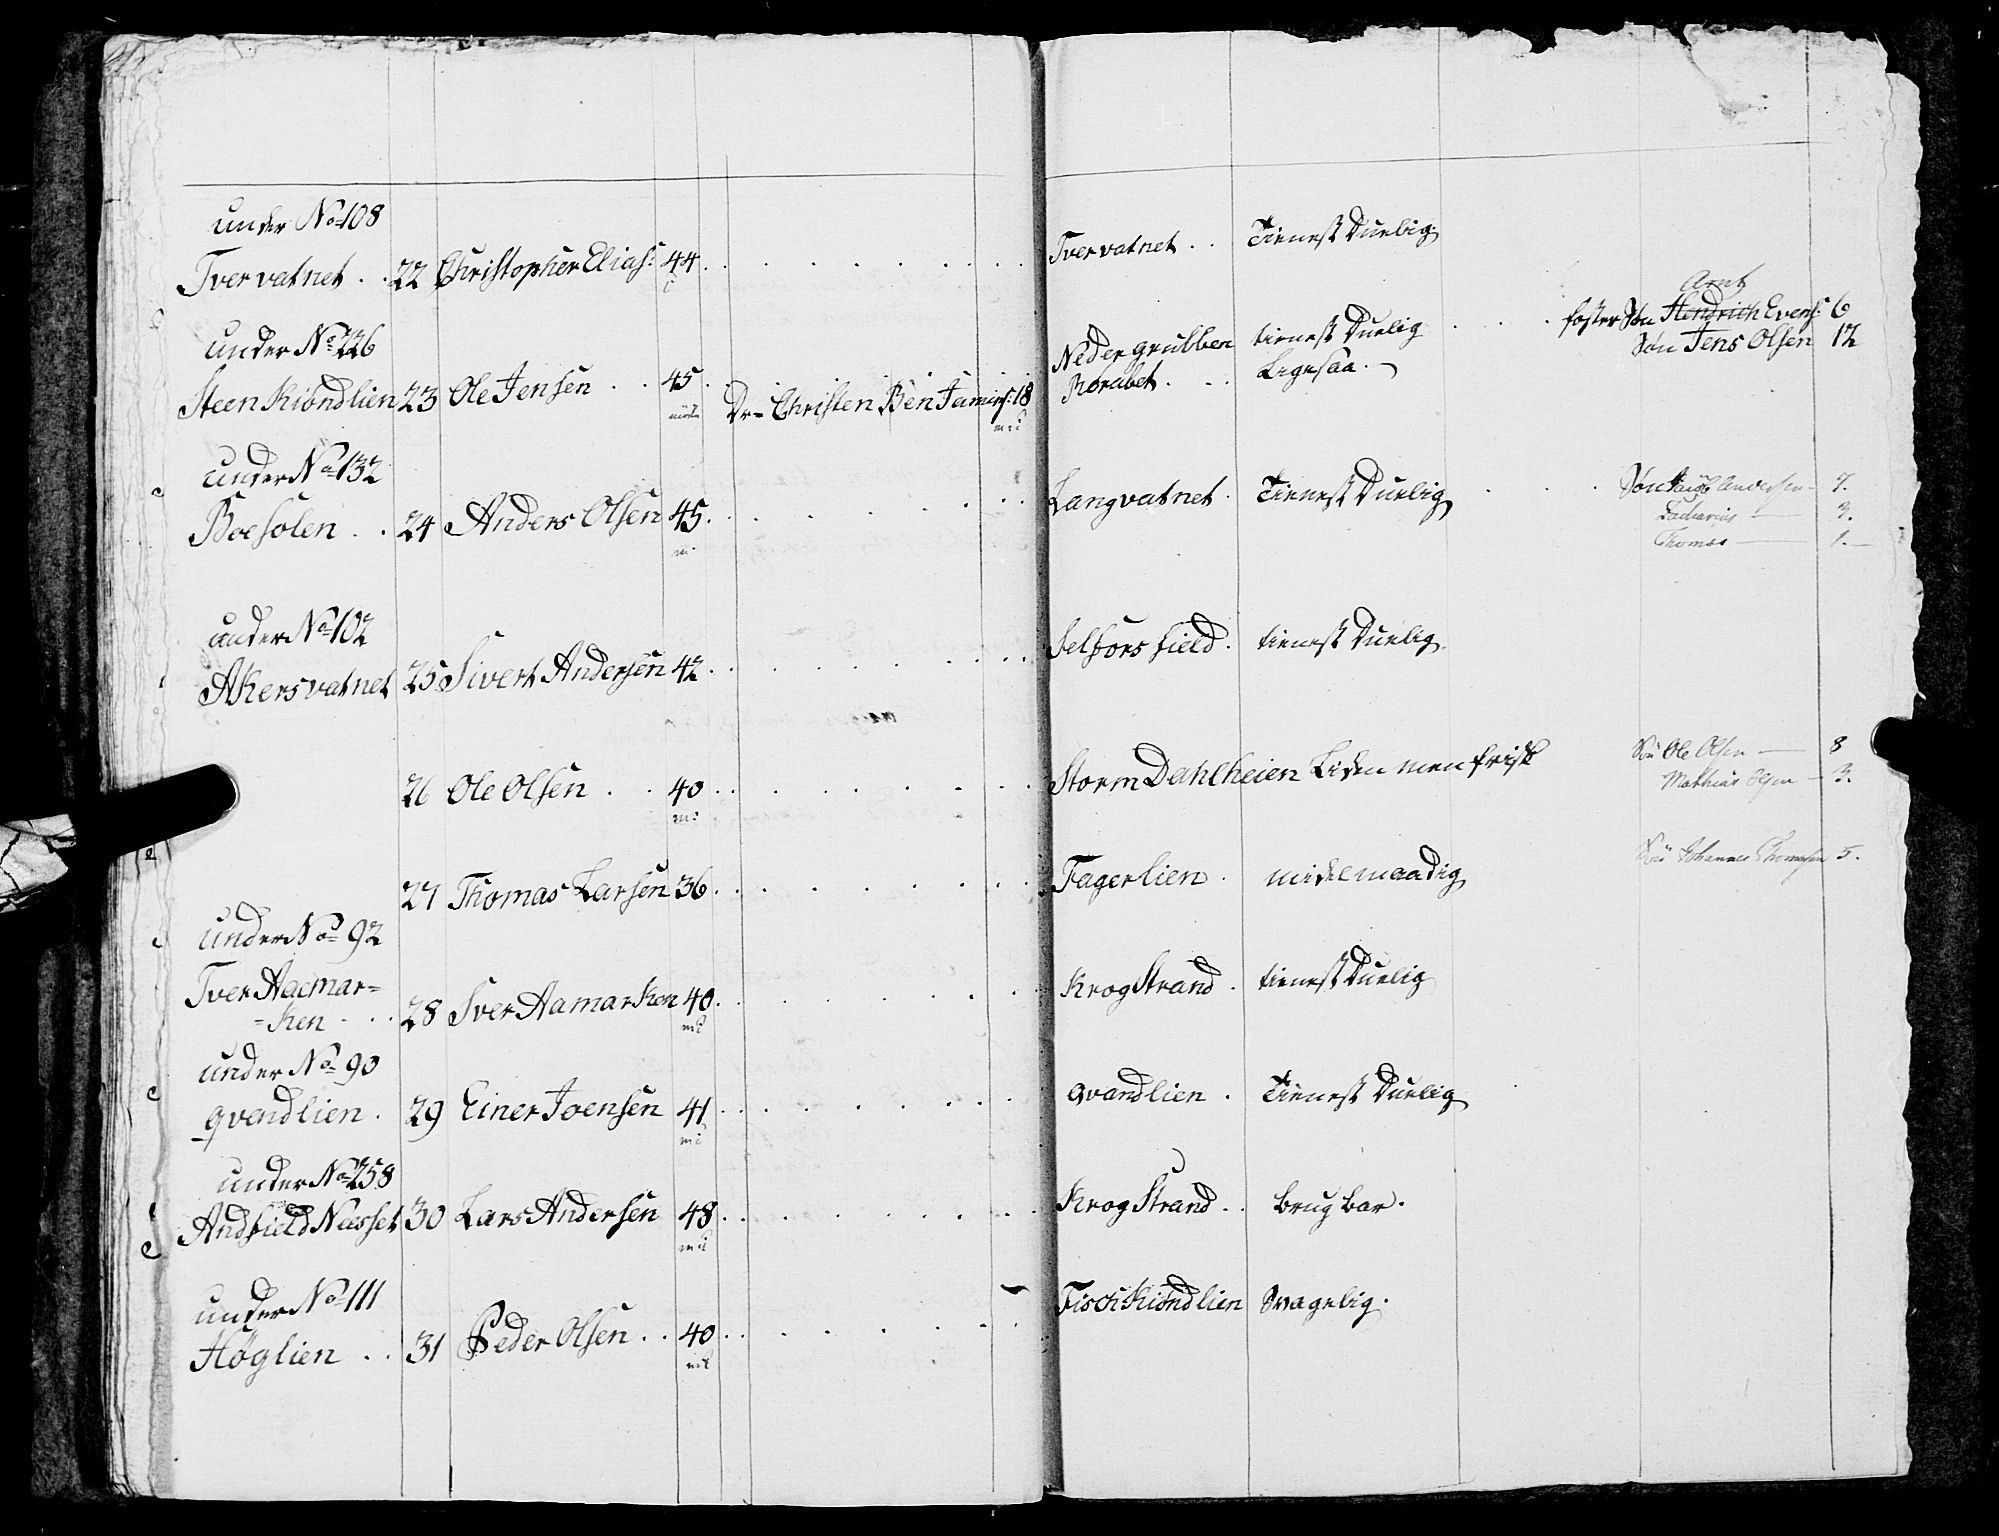 under No 108
Tvervatnet . . 22 Christopher Elias: 44 . . . . . . . . . Tvervatnet . . Tienest Duelig.
i
Arnt
under No 226
Steen Kiöndlien 23 Ole Jensen . . 45 . . Nedergrubben tienest Duelig . . . foster Søn Hendrich Evens: 6
Søn Jens Olsen 12
Dr= Christen BenJamins: 18 Rørabet . . . Ligesaa.
under No 132
Boesolen . . 24 Anders Olsen 45 . . . . . . . . Langvatnet . Tienest Duelig . . . Søn Andersen 7.
m.
Zacharias — 3.
Thomas — 1.
under No 102
Akersvatnet 25 Sivert Andersen 42 . . . . . . . . . Selfors field . tienest Duelig.
26 Ole Olsen . . 40 . . . . . . . . Storm Dahlheien Liden men frisk Søn Ole Olsen — 8
m:
Mathias Olsen — 3.
27 Thomas Larsen 36 . . . . . . . . Fagerlien . midelmaadig Søn Johannes Thomesen 5.
under No 92
Tver Aaemar=
=ken . . . 28 Iver Aamarken 40 . . . . . . . Krog Strand . tienest Duelig
under No 90
qvendlien . 29 Einer Joensen 41 . . . . . . . . qvandlien . Tienest Duelig
under No 258
Andfield Næsset 30 Lars Andersen 48 . . . . . . . . Krog Strand . . brugbar.
under No 111
Høglien . . 31 Peder Olsen . . 40 . . . . . . . Fisch Kiöndlien Svagelig.